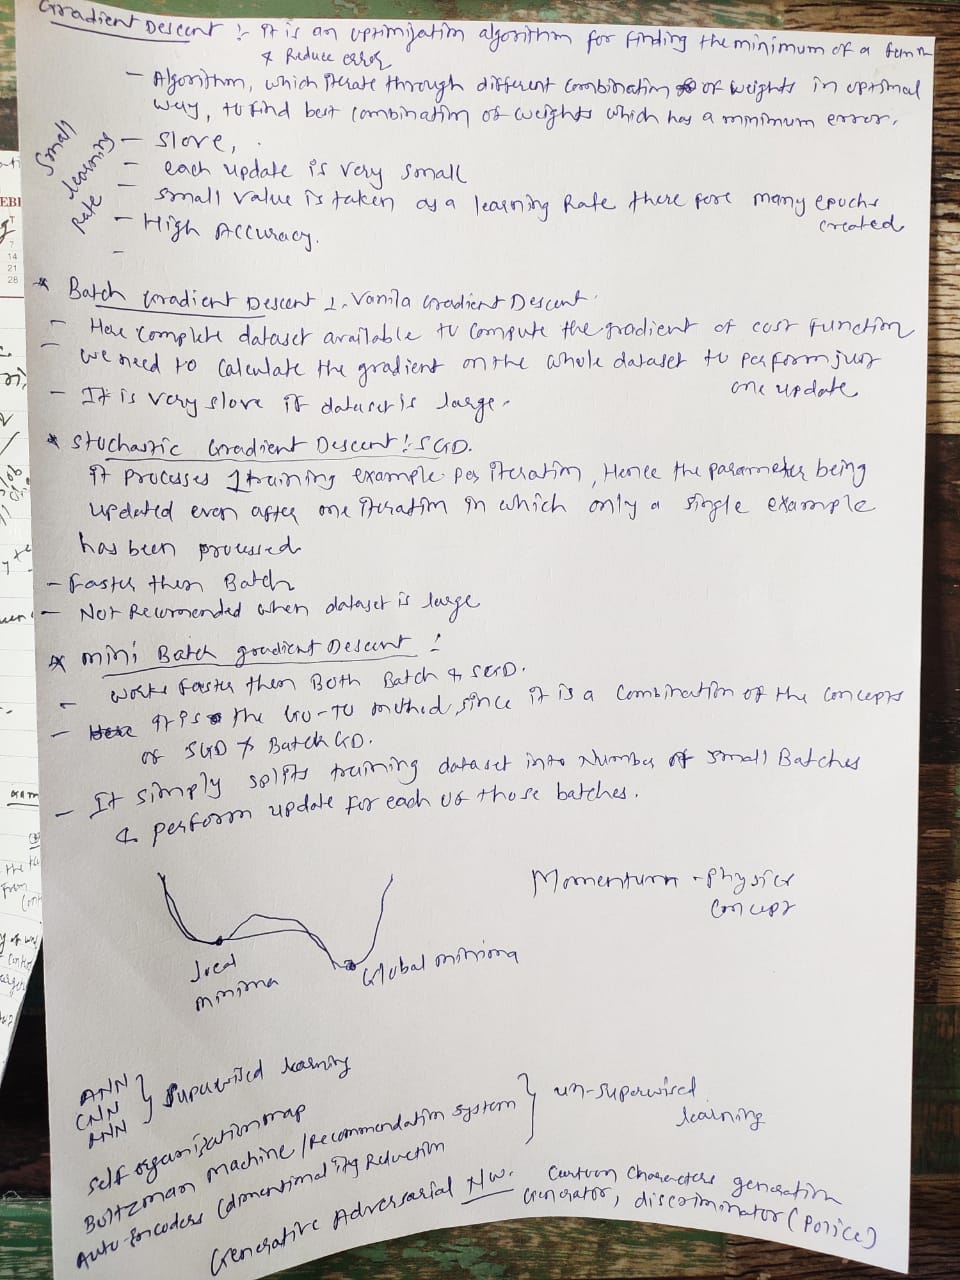 Gradient Descent :- It is an optimization algorithm for finding the minimum of a funn
& Reduce error
- Algorithm, which iterate through different combination of weights in optimal
way, to find best combination of weights which has a minimum error.
Small learning Rate
- Slove,
- each update is very small
- small value is taken as a learning Rate there fore many epochs
created
- High Accuracy.
-
* Batch Gradient Descent :- Vanila Gradient Descent
- Here complete dataset available to compute the gradient of cost function
- we need to calculate the gradient on the whole dataset to perform just
one update
- It is very slove if dataset is large.
* Stochastic Gradient Descent : SGD.
it processes 1 training example per iteration, Hence the parameter being
updated even after one iteration in which only a single example
has been processed
- Faster then Batch
- Not Recommended when dataset is large
* mini Batch gradient Descent :
- works faster then Both Batch & SGD.
- It is the Go-To method since it is a combination of the concepts
of SGD & Batch GD.
- It simply splits training dataset into Number of small Batches
& perform update for each of those batches.
Momentum - Physics
concept
local
minima
Global minima
ANN
CNN
RNN
} Supuervised learning
Self organization map
Boltzman machine / Recommendation system
Auto-Encoders (dimentionality Reduction
} un-superwised
learning
Generative Adversarial N/w.
Cartoon Characters generation
Generator, discriminator (Police)